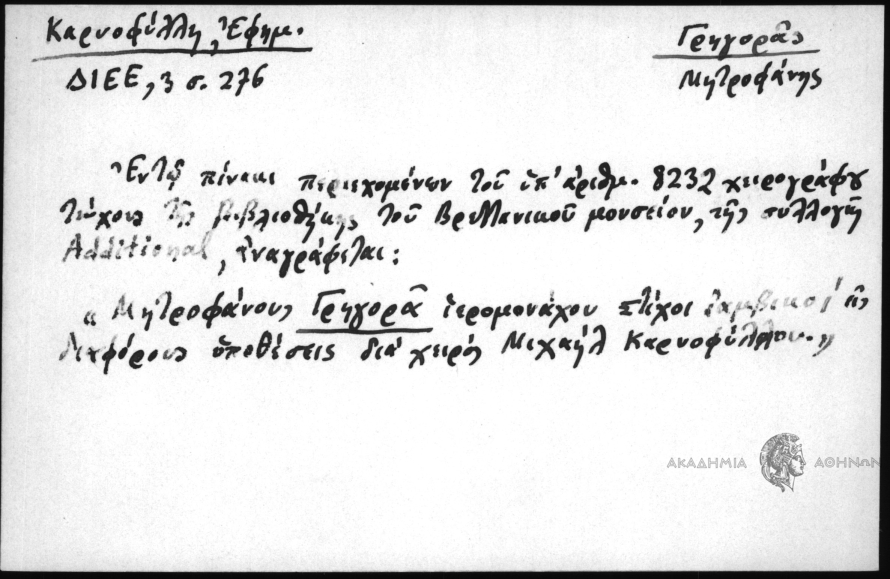 Καρυοφύλλη, Ἐφημ.
Γρηγορᾶς
ΔΙΕΕ, 3 σ. 276
Μητροφάνης
Ἐν τῷ πίνακι περιεχομένων τοῦ ὑπ' ἀριθμ. 8232 χειρογράφου
τεύχους τῆς βιβλιοθήκης τοῦ Βρεττανικοῦ μουσείου, τῆς συλλογῆς
Additional, ἀναγράφεται:
„ Μητροφάνους Γρηγορᾶ ἱερομονάχου στίχοι ἰαμβικοὶ εἰς
διαφόρους ὑποθέσεις διὰ χειρός Μιχαήλ Καρυοφύλλου. „
ΑΚΑΔΗΜΙΑ ΑΘΗΝΩΝ